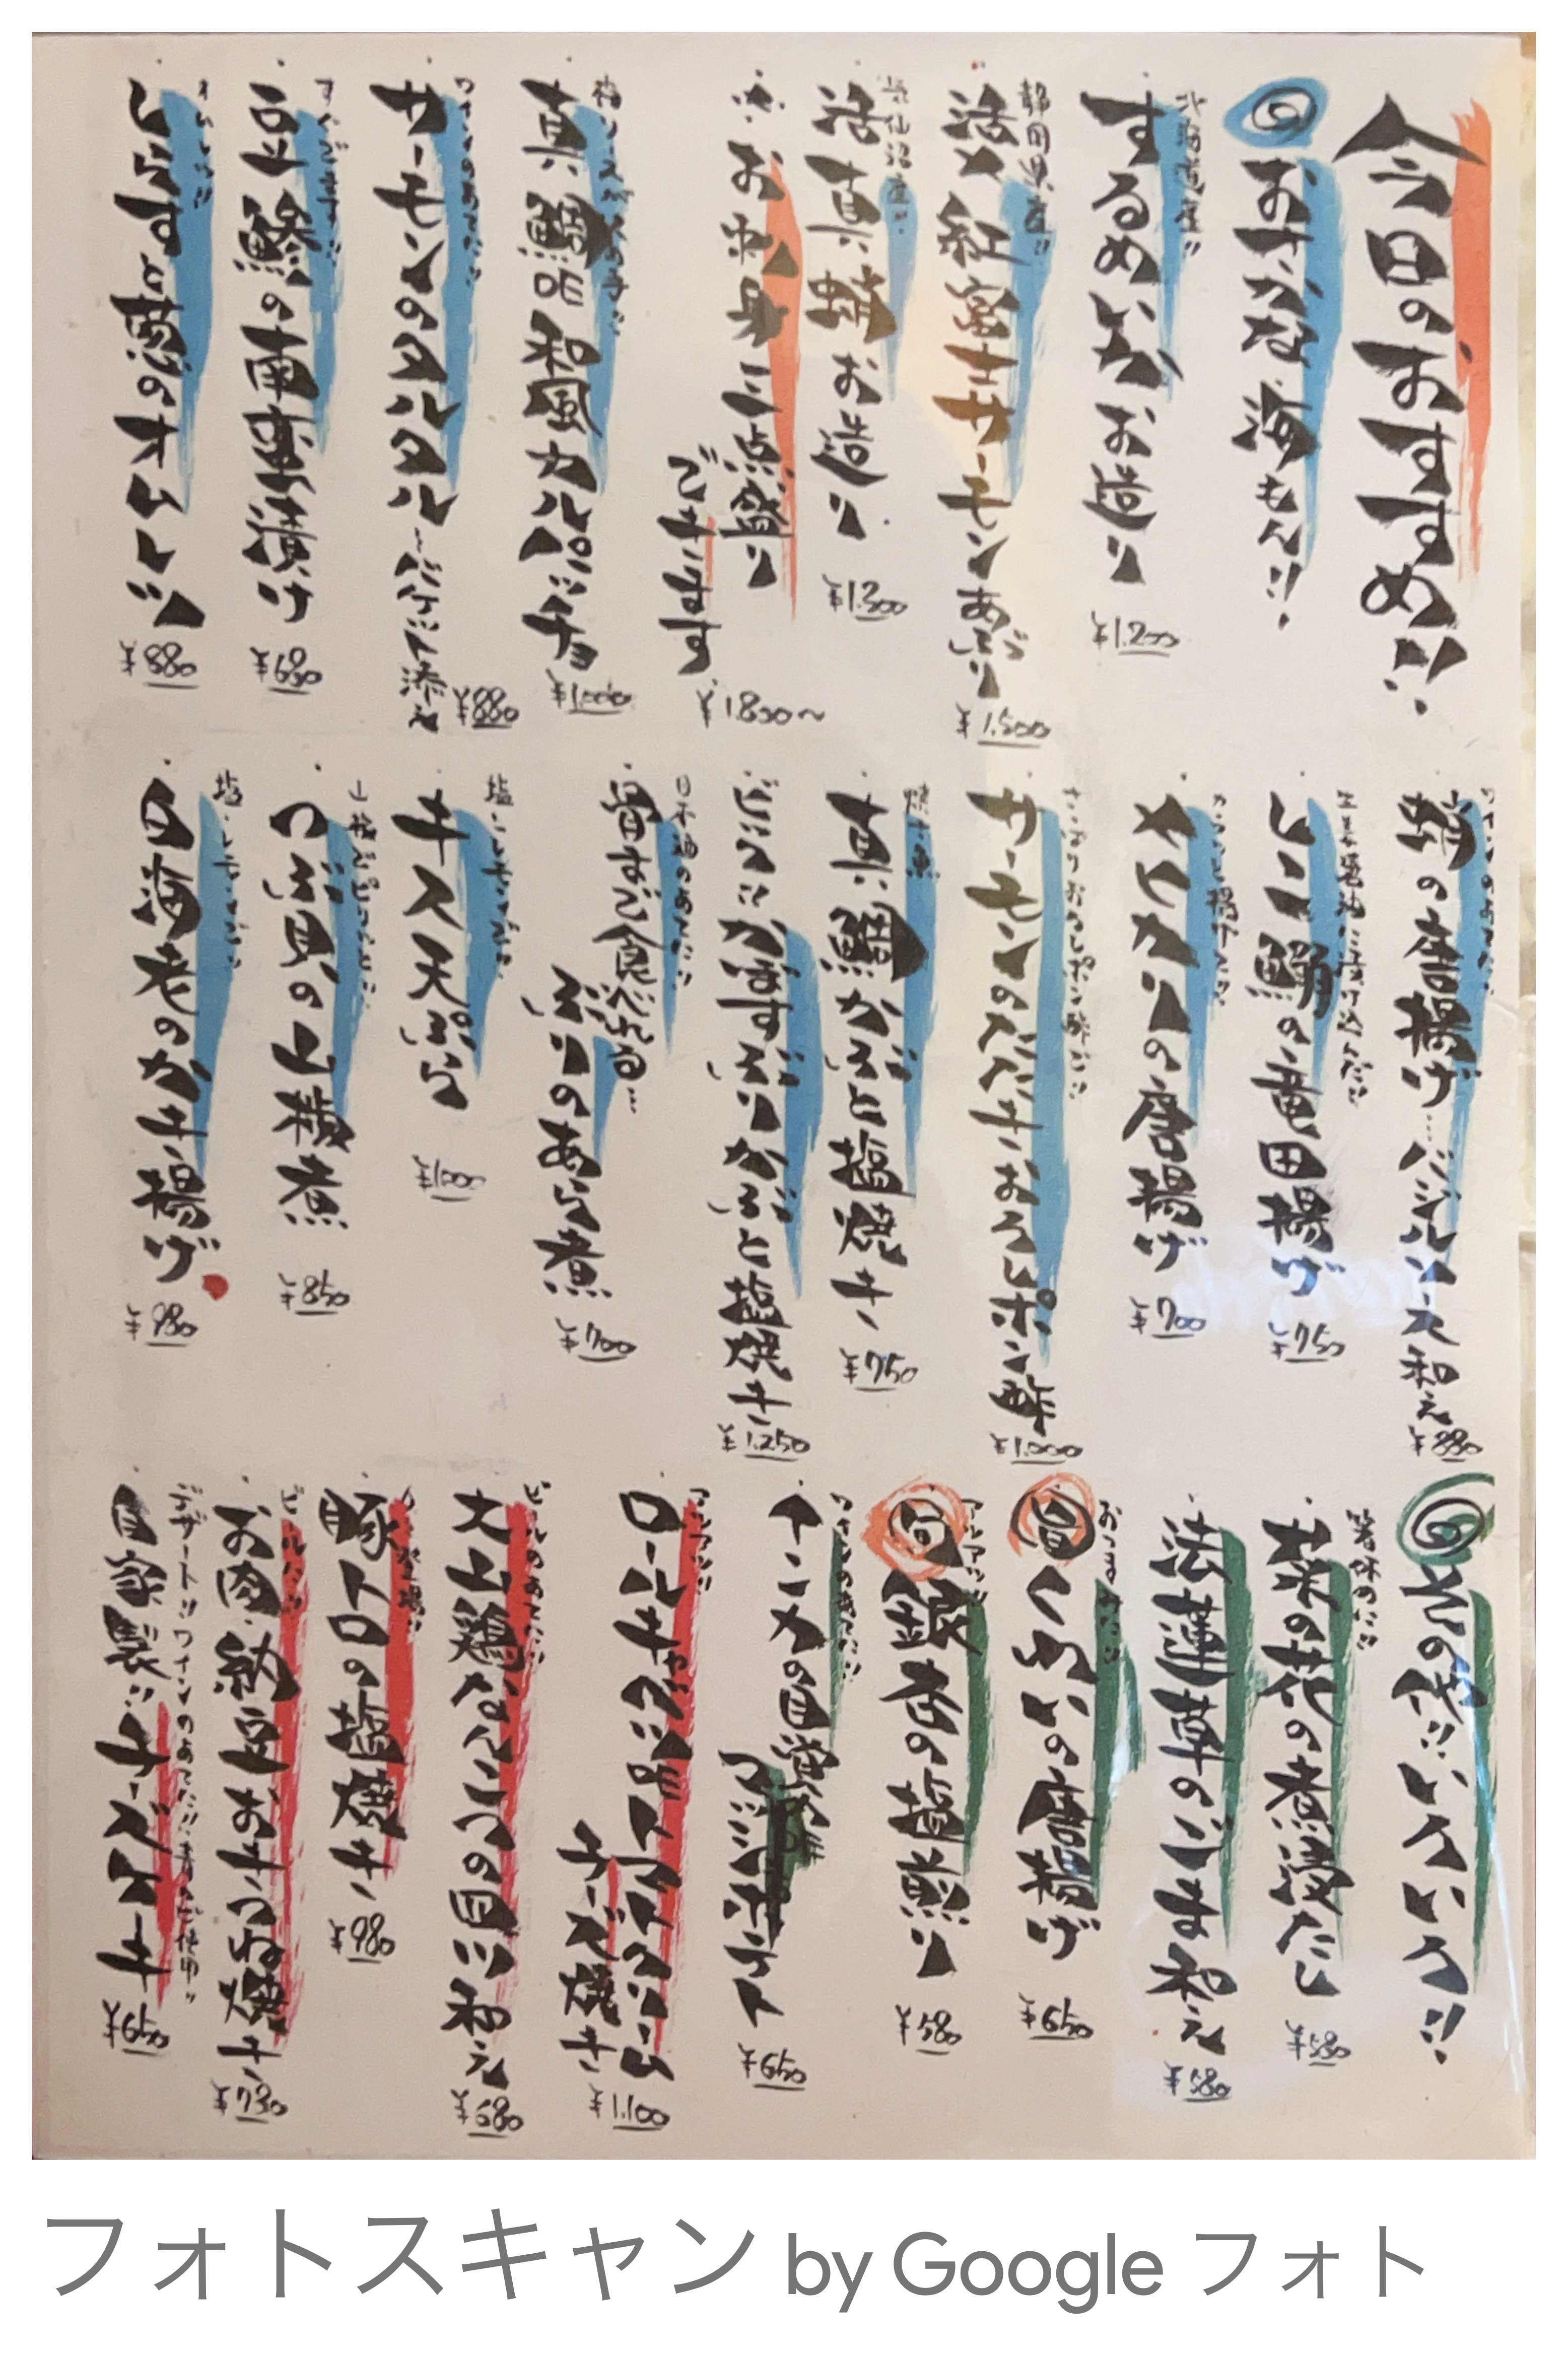 今日のおすすめ!!
◎おさかな、海もん!!
北海道産!!
するめいかお造り
¥1.200
静岡県産!!
活〆紅富士サーモンあぶり
¥1.500
気仙沼産!!
活真蛸お造り
¥1.300
お刺身三点盛り
できます
¥1800〜
真鯛の和風カルパッチョ
¥1000
ワインのあてに!!
サーモンのタルタル
〜バゲット添え
¥880
すぐでます!!
豆鯵の南蛮漬け
¥680
しらすと葱のオムレツ
¥880
ワインのあてに!!
蛸の唐揚げ…バジルソース和え
¥880
生姜醤油に漬け込んだ!!
しこ鰯の竜田揚げ
¥750
メヒカリの唐揚げ
¥700
さっぱりおろしポン酢で!!
サーモンのステーキおろしポン酢
¥1.000
焼き魚
真鯛かぶと塩焼き
¥750
かんぱちかぶと塩焼き
¥1.250
日本酒のあてに!!
骨まで食べれる…
ぶりのあら煮
¥700
塩・レモンで!!
キス天ぷら
¥1000
つぶ貝の山椒煮
¥850
塩・レモンで!!
白海老のかき揚げ
¥980
◎その他!!いろいろ!!
箸休めに!!
菜の花の煮浸だし
¥580
法蓮草のごま和え
¥580
おつまみに!!
旬くわいの唐揚げ
¥650
アツアツ!!
旬銀杏の塩煎り
¥580
ワインのあてに!!
インカの目覚めの
マッシュポテト
¥650
アツアツ!!
ロールキャベツのトマトクリーム
チーズ焼き
¥1.100
ビールのあてに!!
大山鶏なんこつの目川和え
¥680
豚トロの塩焼き
¥980
ビールに!!
お肉・納豆おきつね焼き
¥730
デザート!!ワインのあてに!!
自家製!!チーズケーキ
¥650
フォトスキャン by Google フォト